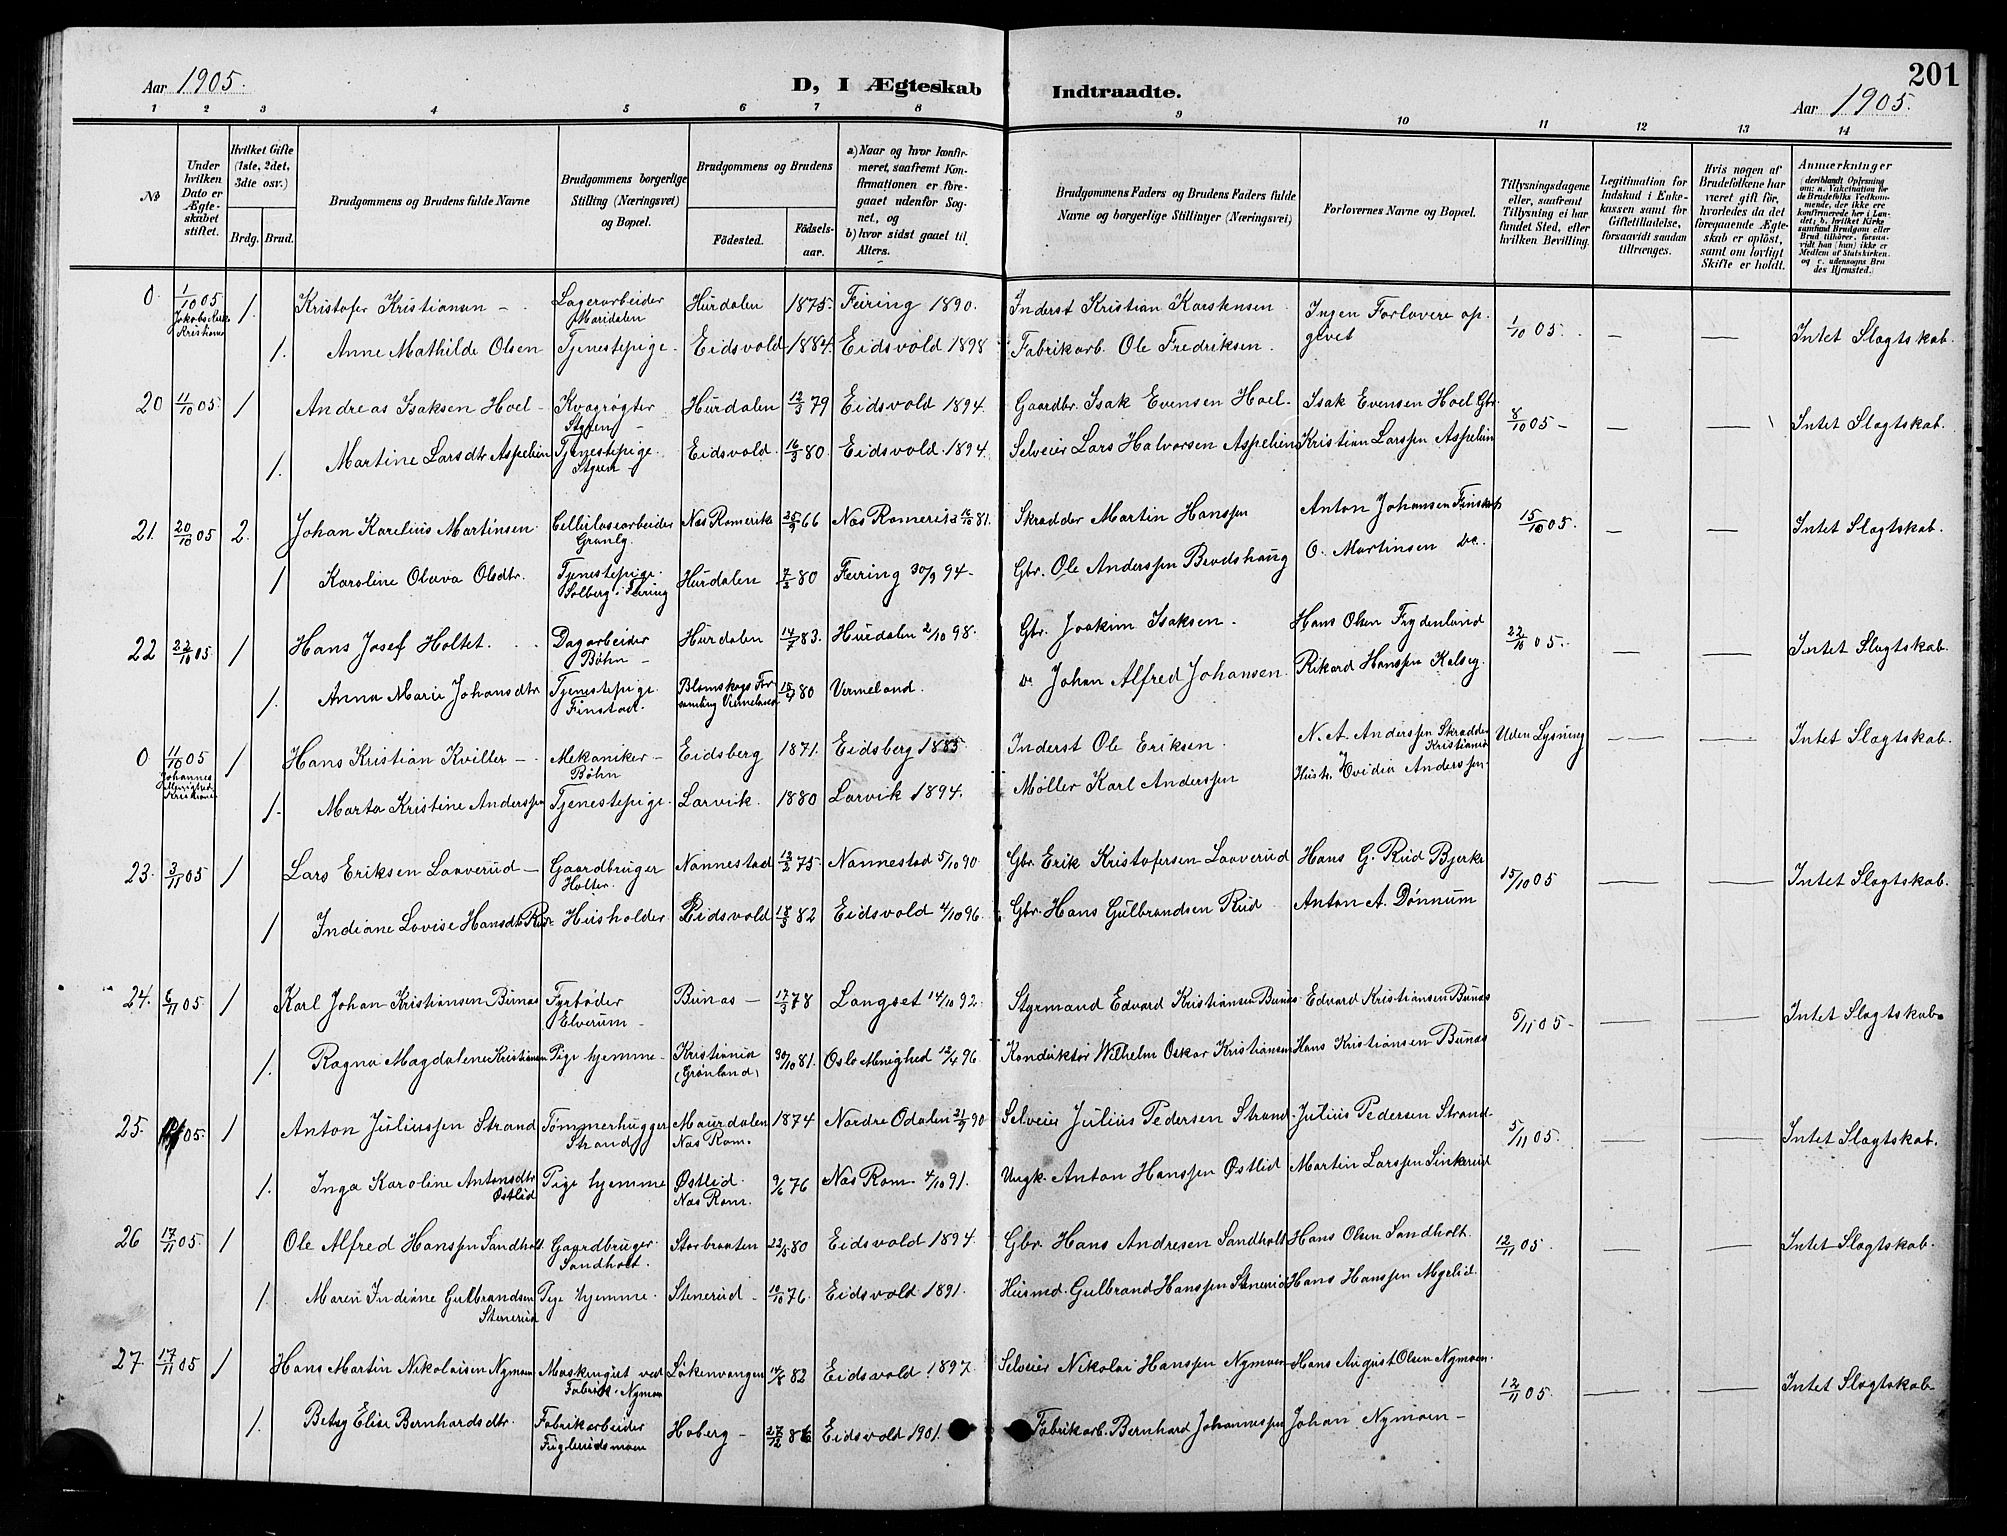 201
Aar 1905.
D, I Ægteskab
Indtraadte.
Aar 1905.
1 2 3 4 5 6 7 8 9 10 11 12 13 14
No
Under hvilken Dato er Ægteskabet stiftet.
Hvilket Gifte (1ste, 2det, 3die osv.)
Brdg. Brud.
Brudgommens og Brudens fulde Navne
Brudgommens borgerlige Stilling (Næringsvei) og Bopæl.
Brudgommens og Brudens
Fødested.
Fødselsaar.
a) Naar og hvor konfirmeret, saafremt Konfirmationen er foregaaet udenfor Sognet, og
b) hvor sidst gaaet til Alters.
Brudgommens Faders og Brudens Faders fulde Navne og borgerlige Stillinger (Næringsvei)
Forlovernes Navne og Bopæl.
Tillysningsdagene eller, saafremt Tillysning ei har fundet Sted, efter hvilken Bevilling.
Legitimation for Indskud i Enkekassen samt for Giftetilladelse, forsaavidt saadan tiltrænges.
Hvis nogen af Brudefolkene har været gift før, hvorledes da det foregaaende Ægteskab er opløst, samt om lovligt Skifte er holdt.
Anmærkninger
0 1/10 05 Jakobs Kirke Kristiania 1. Kristofer Kristiansen - Lagerarbeider Maridalen Hurdalen 1875. Feiring 1890. Inderst Kristian Karstensen Ingen Forlovere opgivet 1/10 05. — — Intet Slægtskab.
1. Anne Mathilde Olsen Tjenestepige. Eidsvold 1884. Eidsvold 1898 Fabrikarb. Ole Fredriksen.
20 11/10 05. 1 Andreas Isaksen Hoel - Kvægrøgter Styren Hurdalen 12/3 79 Eidsvold 1894. Gaardbr. Isak Evensen Hoel - Isak Evensen Hoel Gbr. 8/10 05 - — — Intet Slægtskab.
1. Martine Larsdtr Aspelien Tjenestepige. Styren Eidsvold. 16/3 80. Eidsvold. 1894. Selveier Lars Halvorsen Aspelien Kristian Larssen Aspelien
21. 20/10 05 2. Johan Karelius Martinsen. Celluloseearbeider Granlg. Næs Romerike 25/9 66 Næs Romerike 16/10 81. Skrædder Martin Hanssen Anton Johansen Finstad 15/10 05. — — Intet Slægtskab.
1 Karoline Olava Olsdtr. Tjenestepige. Solberg i Feiring Hurdalen 7/2 80 Feiring 30/9 94 - Gbr. Ole Anderssen Brodshaug O. Martinsen Do.
22 22/10 05. 1 Hans Josef Holtet. Dagarbeider Bøhn - Hurdalen 14/7 83. Hurdalen 2/10 98. Gbr. Joakim Isaksen. Hans Olsen Frydenlund 22/10 05. — — Intet Slægtskab.
1. Anna Marie Johansdtr Tjenestepige. Finstad. Blomskogs Forsamling Vermeland 15/9 80 Vermeland. Do Johan Alfred Johansen. Rikard Hanssen Kelsig.
0 11/10 05 Johannes Menighed Kristiania 1 Hans Kristian Kviller - Mekaniker - Bøhn Eidsberg 1871. Eidsberg 1885 Inderst Ole Eriksen. N. A. Anderssen Skrædder Kristiania Uden Lysning — — Intet Slægtskab.
1. Marta Kristine Anderssen Tjenestepige. Larvik. 1880 Larvik 1894. Møller Karl Anderssen Hustr. Ovidia Anderssen.
23. 3/11 05 1 Lars Eriksen Laaverud - Gaardbruger Holter. Nannestad 12/2 75. Nannestad 5/10 90. Gbr. Erik Kristofersen Laaverud Hans G. Rud Bjerke 15/10 05 — — Intet Slægtskab.
1 Indiane Lovise Hansdtr Rud - Husholder Eidsvold 18/3 82 Eidsvold 4/10 96. Gbr. Hans Gulbrandsen Rud Anton A. Dønnum
24. 6/11 05 1 Karl Johan Kristiansen Bunæs Fyrbøder Elverum - Bunæs - 17/3 78 Langset 14/10 92. Styrmand Edvard Kristiansen Bunæs Edvard Kristiansen Bunæs 5/11 05 - — — Intet Slægtskab.
1. Ragna Magdalene Kristiansen Pige hjemme - Kristiania (Grønland) 30/10 81. Oslo Menighed 12/4 96 Konduktør Wilhelm Oskar Kristiansen Hans Kristiansen Bunæs
25. 05. 1 Anton Juliussen Strand Tømmerhugger Strand Maurdalen Næs Rom. 1874 Nordre Odalen 21/9 90 Selveier Julius Pedersen Strand Julius Pedersen Strand. 5/11 05. — — Intet Slægtskab.
1. Inga Karoline Antonsdtr Østlid Pige hjemme Østlid. Næs Rom. 9/6 76 Næs Rom - 4/10 91. Ungk. Anton Hanssen Østlid Martin Larssen Sinkerud
26 17/11 05. 1 Ole Alfred Hanssen Sandholt. Gaardbruger. Sandholt. Storbraaten 22/5 80 Eidsvold 1894. Gbr. Hans Andresen Sandholt Hans Olsen Sandholt. 12/11 05. — — Intet Slægtskab.
1. Maren Indiane Gulbrandsen Stenerud Pige hjemme. Stenerud - 10/10 76. Eidsvold 1891. Husmd. Gulbrand Hanssen Stenerud Hans Hanssen Mgelid.
27. 17/11 05 1 Hans Martin Nikolaisen Nymoen Maskingut ved Fabrik. Nymoen Løkenvangen 14/8 82 Eidsvold 1897. Selveier Nikolai Hanssen Nymoen - Hans August Olsen Nymoen. 12/11 05. — — Intet Slægtskab
1. Betsy Elise Bernhardsdtr. Fabrikarbeider Fuglerudsmoen Hoberg - 27/12 86 Eidsvold 1901. Fabrikarb. Bernhard Johannessen Johan Nymoen -